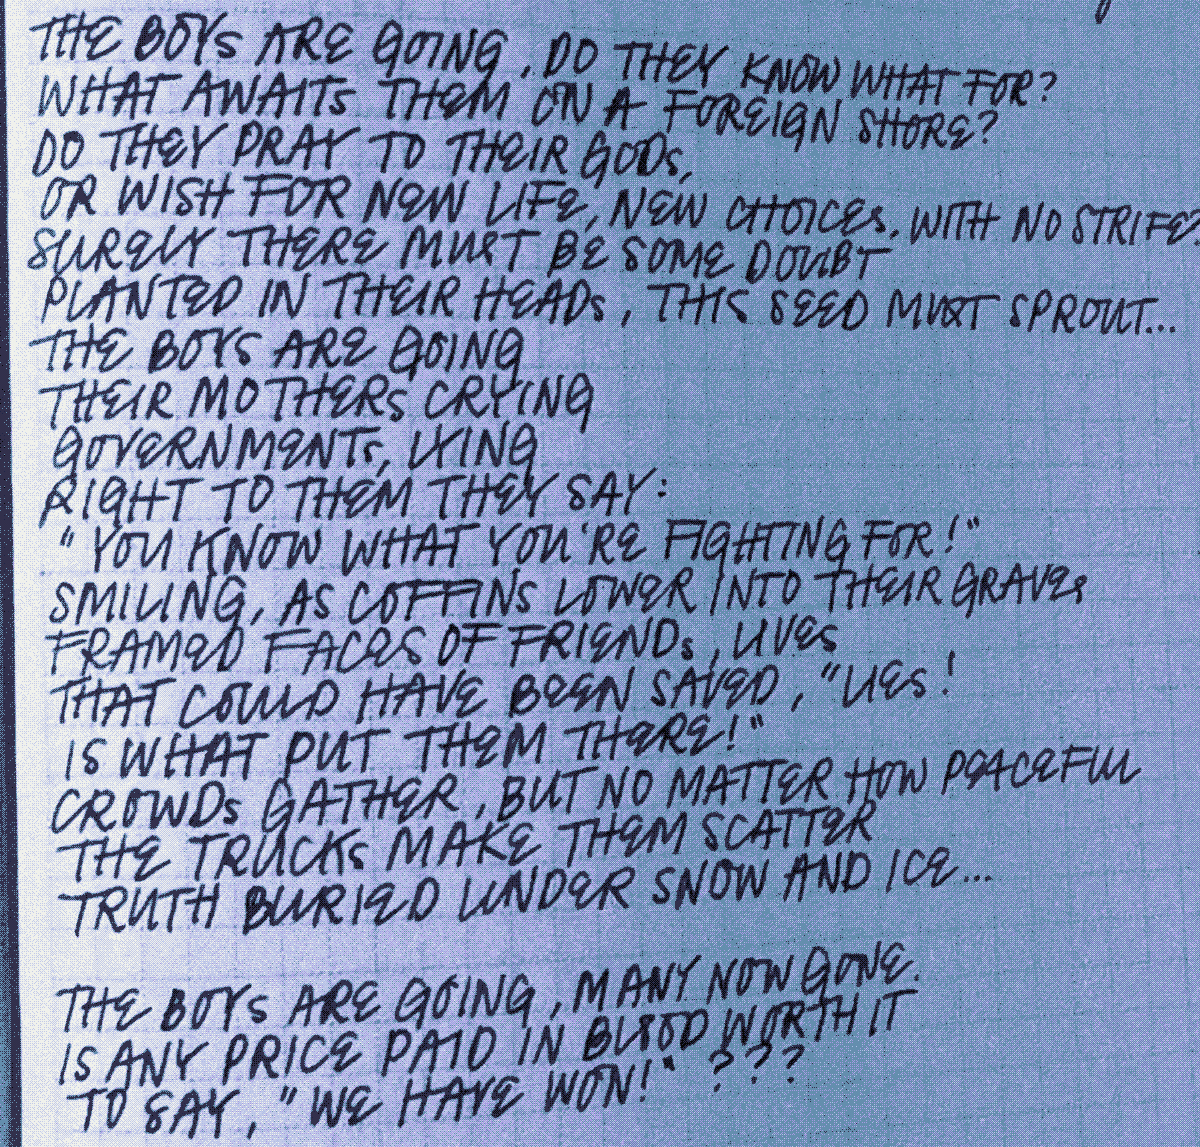 THE BOYS ARE GOING, DO THEY KNOW WHAT FOR?
WHAT AWAITS THEM ON A FOREIGN SHORE?
DO THEY PRAY TO THEIR GODS,
OR WISH FOR NEW LIFE, NEW CHOICES, WITH NO STRIFE?
SURELY THERE MUST BE SOME DOUBT
PLANTED IN THEIR HEADS, THIS SEED MUST SPROUT...
THE BOYS ARE GOING
THEIR MOTHERS CRYING
GOVERNMENTS, LYING
RIGHT TO THEM THEY SAY:
"YOU KNOW WHAT YOU'RE FIGHTING FOR!"
SMILING, AS COFFINS LOWER INTO THEIR GRAVES
FRAMED FACES OF FRIENDS, LIVES
THAT COULD HAVE BEEN SAVED, "LIES!
IS WHAT PUT THEM THERE!"
CROWDS GATHER, BUT NO MATTER HOW PEACEFUL
THE TRUCKS MAKE THEM SCATTER
TRUTH BURIED UNDER SNOW AND ICE...
THE BOYS ARE GOING, MANY NOW GONE.
IS ANY PRICE PAID IN BLOOD WORTH IT
TO SAY, "WE HAVE WON!" ???